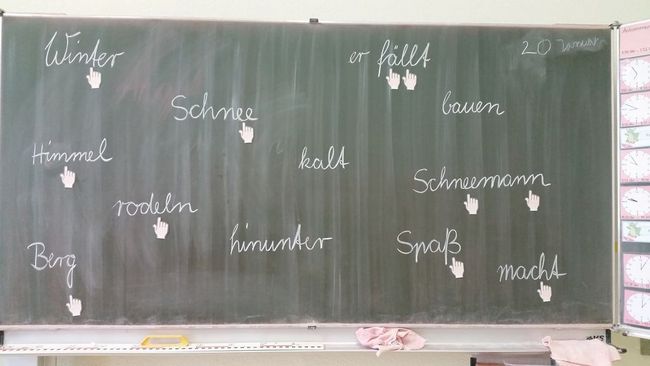 Winter
er fällt
20 Januar
Schnee
bauen
Himmel
kalt
Schneemann
rodeln
hinunter
Spaß
Berg
macht